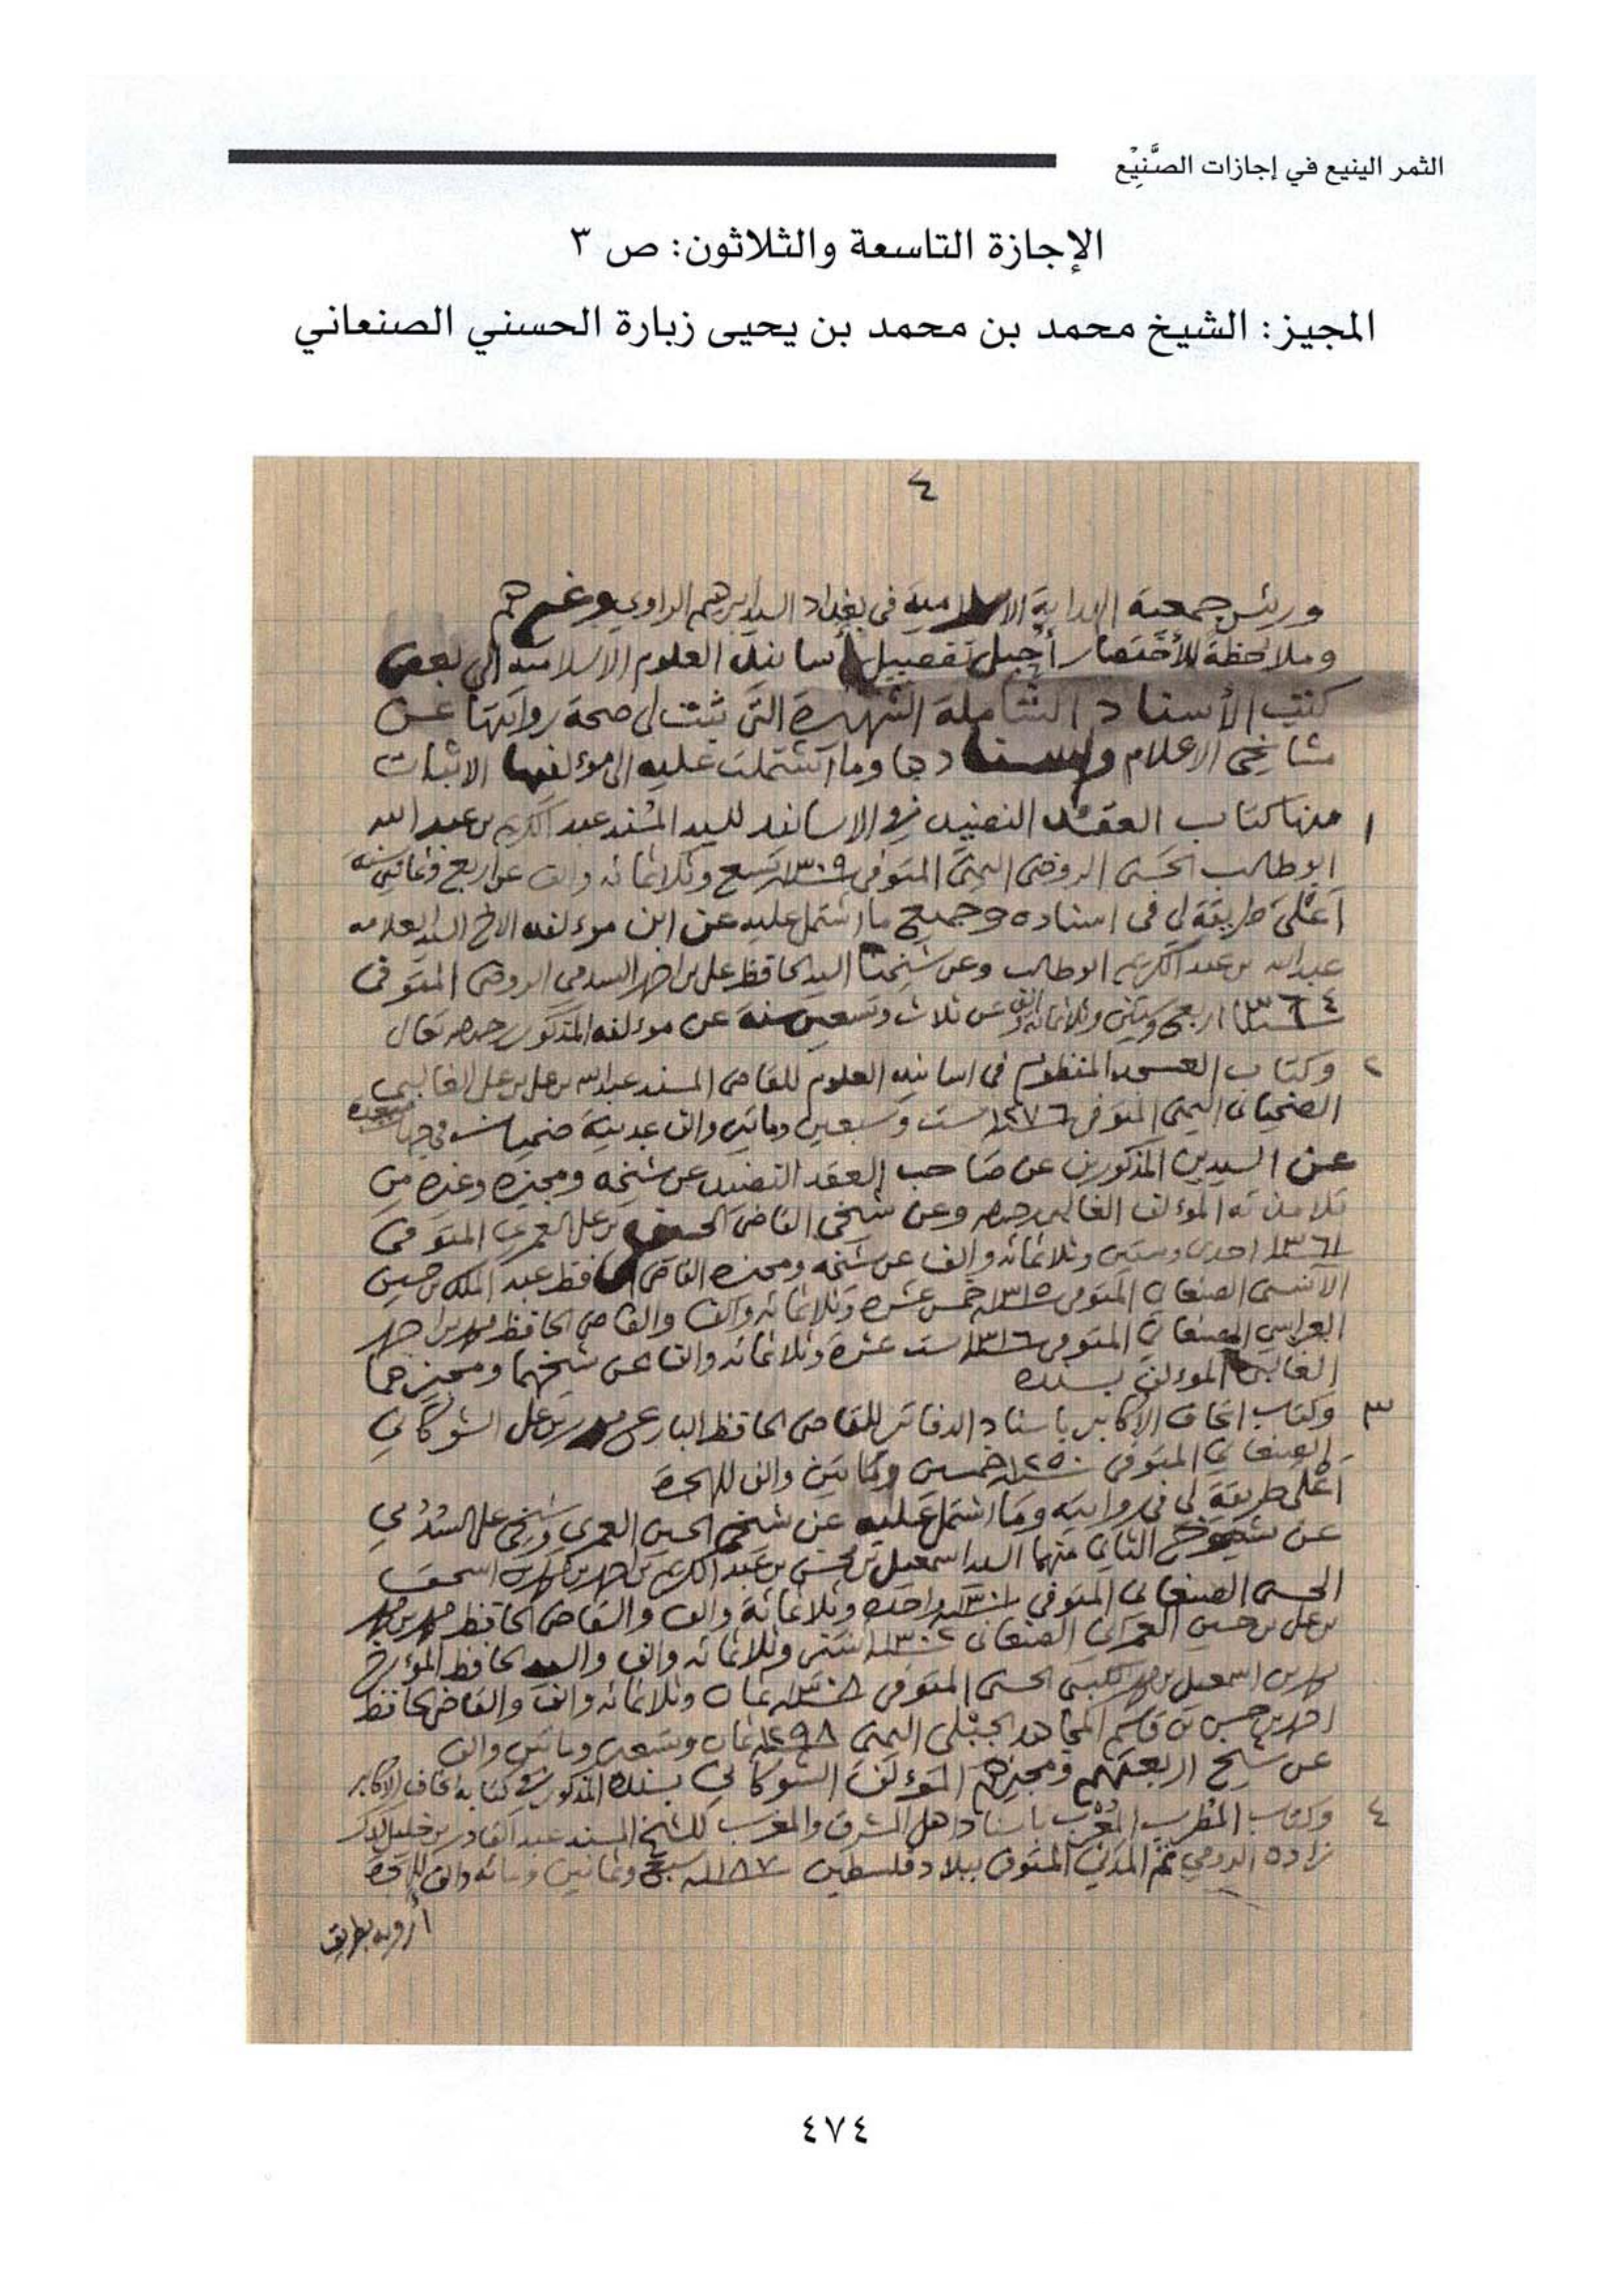 الثمر الينيع في إجازات الصَّنِيْع
الإجازة التاسعة والثلاثون: ص ٣
المجيز: الشيخ محمد بن محمد بن يحيى زبارة الحسني الصنعاني
٤
ورئيس جمعية الهداية الاسلامية في بغداد السيد ابرهيم الراوي وغيرهم
وملاحظة للأختصار أحيل تفصيل أسانيد العلوم الاسلامية الى بعض
كتب الأسناد الشاملة الشهيرة التي ثبت لي صحة روايتها عن
مشايخي الاعلام واسنادها وما اشتملت عليه الى مؤلفيها الاثبات
١ منها كتاب العقد النضيد في الاسانيد للسيد المسند عبد الكريم بن عبد الله
ابو طالب الحسني الروضي اليمني المتوفى سنة ١٣٠٩ تسع وثلاثمائه والف عن اربع وثمانين سنة
أعلى طريقة لي في اسناده وجميع ما اشتمل عليه عن ابن مؤلفه الاخ السيد العلامه
عبد الله بن عبد الكريم ابو طالب وعن شيخنا السيد الحافظ علي بن احمد السدمي الروضي المتوفى
سنة ١٣٦٤ اربع وستين وثلاثمائه والف عن ثلاث وتسعين سنة عن مؤلفه المذكور رحمه تعالى
٢ وكتاب العسجد المنظوم في اسانيد العلوم للقاضي المسند عبد الله بن علي بن علي الغالبي
الضحياني اليمني المتوفى سنة ١٢٧٦ ست وسبعين ومائتين والف بمدينة ضحيان في جهات صعدة
عن السيدين المذكورين عن صاحب العقد النضيد عن شيخه ومجيزه وغيره من
تلامذته المؤلف الغالبي رحمه وعن شيخي القاضي الحسين بن علي العمري المتوفى
سنة ١٣٦١ احدى وستين وثلاثمائه والف عن شيخه ومجيزه القاضي الحافظ عبد الملك بن حسين
الآنسي الصنعاني المتوفى سنة ١٣١٥ خمس عشره وثلاثمائه والف والقاضي الحافظ محمد بن احمد
العراسي الصنعاني المتوفى سنة ١٣١٦ ست عشرة وثلاثمائه والف عن شيخهما ومجيزهما
الغالبي المؤلف بسنده
٣ وكتاب اتحاف الاكابر باسناد الدفاتر للقاضي الحافظ البارع محمد بن علي الشوكاني
الصنعاني المتوفى سنة ١٢٥٠ خمسين ومائتين والف للهجرة
أعلى طريقة لي في روايته وما اشتمل عليه عن شيخي الحسين العمري وشيخي علي السدمي
عن شيوخ الثاني منهما السيد اسمعيل بن محسن بن عبد الكريم بن احمد بن محمد بن اسحق
الحسني الصنعاني المتوفى سنة ١٣٠١ واحده وثلاثمائة والف والقاضي الحافظ محمد بن محمد
بن علي بن حسين العمراني الصنعاني ١٣٠٢ اثنتين وثلاثمائه والف والسيد الحافظ المؤرخ
محمد بن اسمعيل بن محمد الكبسي الحسني المتوفى سنة ١٣٠٨ ثمان وثلاثمائه والف والقاضي الحافظ
احمد بن حسن بن قاسم المجاهد الجبلي اليمني سنة ١٢٩٨ ثمان وتسعين ومائتين والف
عن شيخ اربعتهم ومجيزهم المؤلف الشوكاني بسنده المذكور في كتابه اتحاف الاكابر
٤ وكتاب المطرب المعرب باسناد اهل المشرق والمغرب للشيخ المسند عبد القادر بن خليل كدك
زاده الرومي ثم المدني المتوفى ببلاد فلسطين سنة ١١٨٧ سبع وثمانين ومائه والف للهجرة
أرويه بطريق
٤٧٤